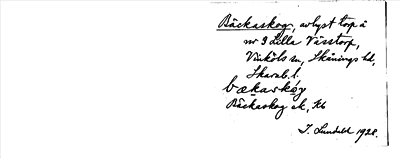 Bäckaskog, avlyst torp å
nr 3 Lilla Västorp,
Vinköls sn, Skånings hd,
Skarab. l.
bækaskóg
Bäckaskog ek, Kb
I. Lundahl 1928.